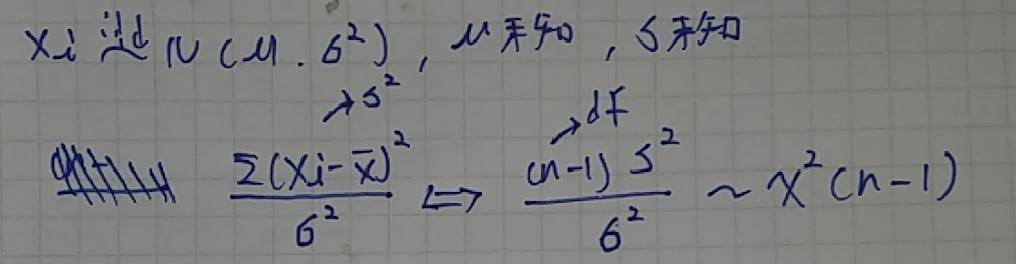 Xi iid~ N(μ, σ²), μ未知, σ未知
→s² →df
Σ(Xi-x̄)²/σ² ⟺ (n-1)s²/σ² ~ χ²(n-1)